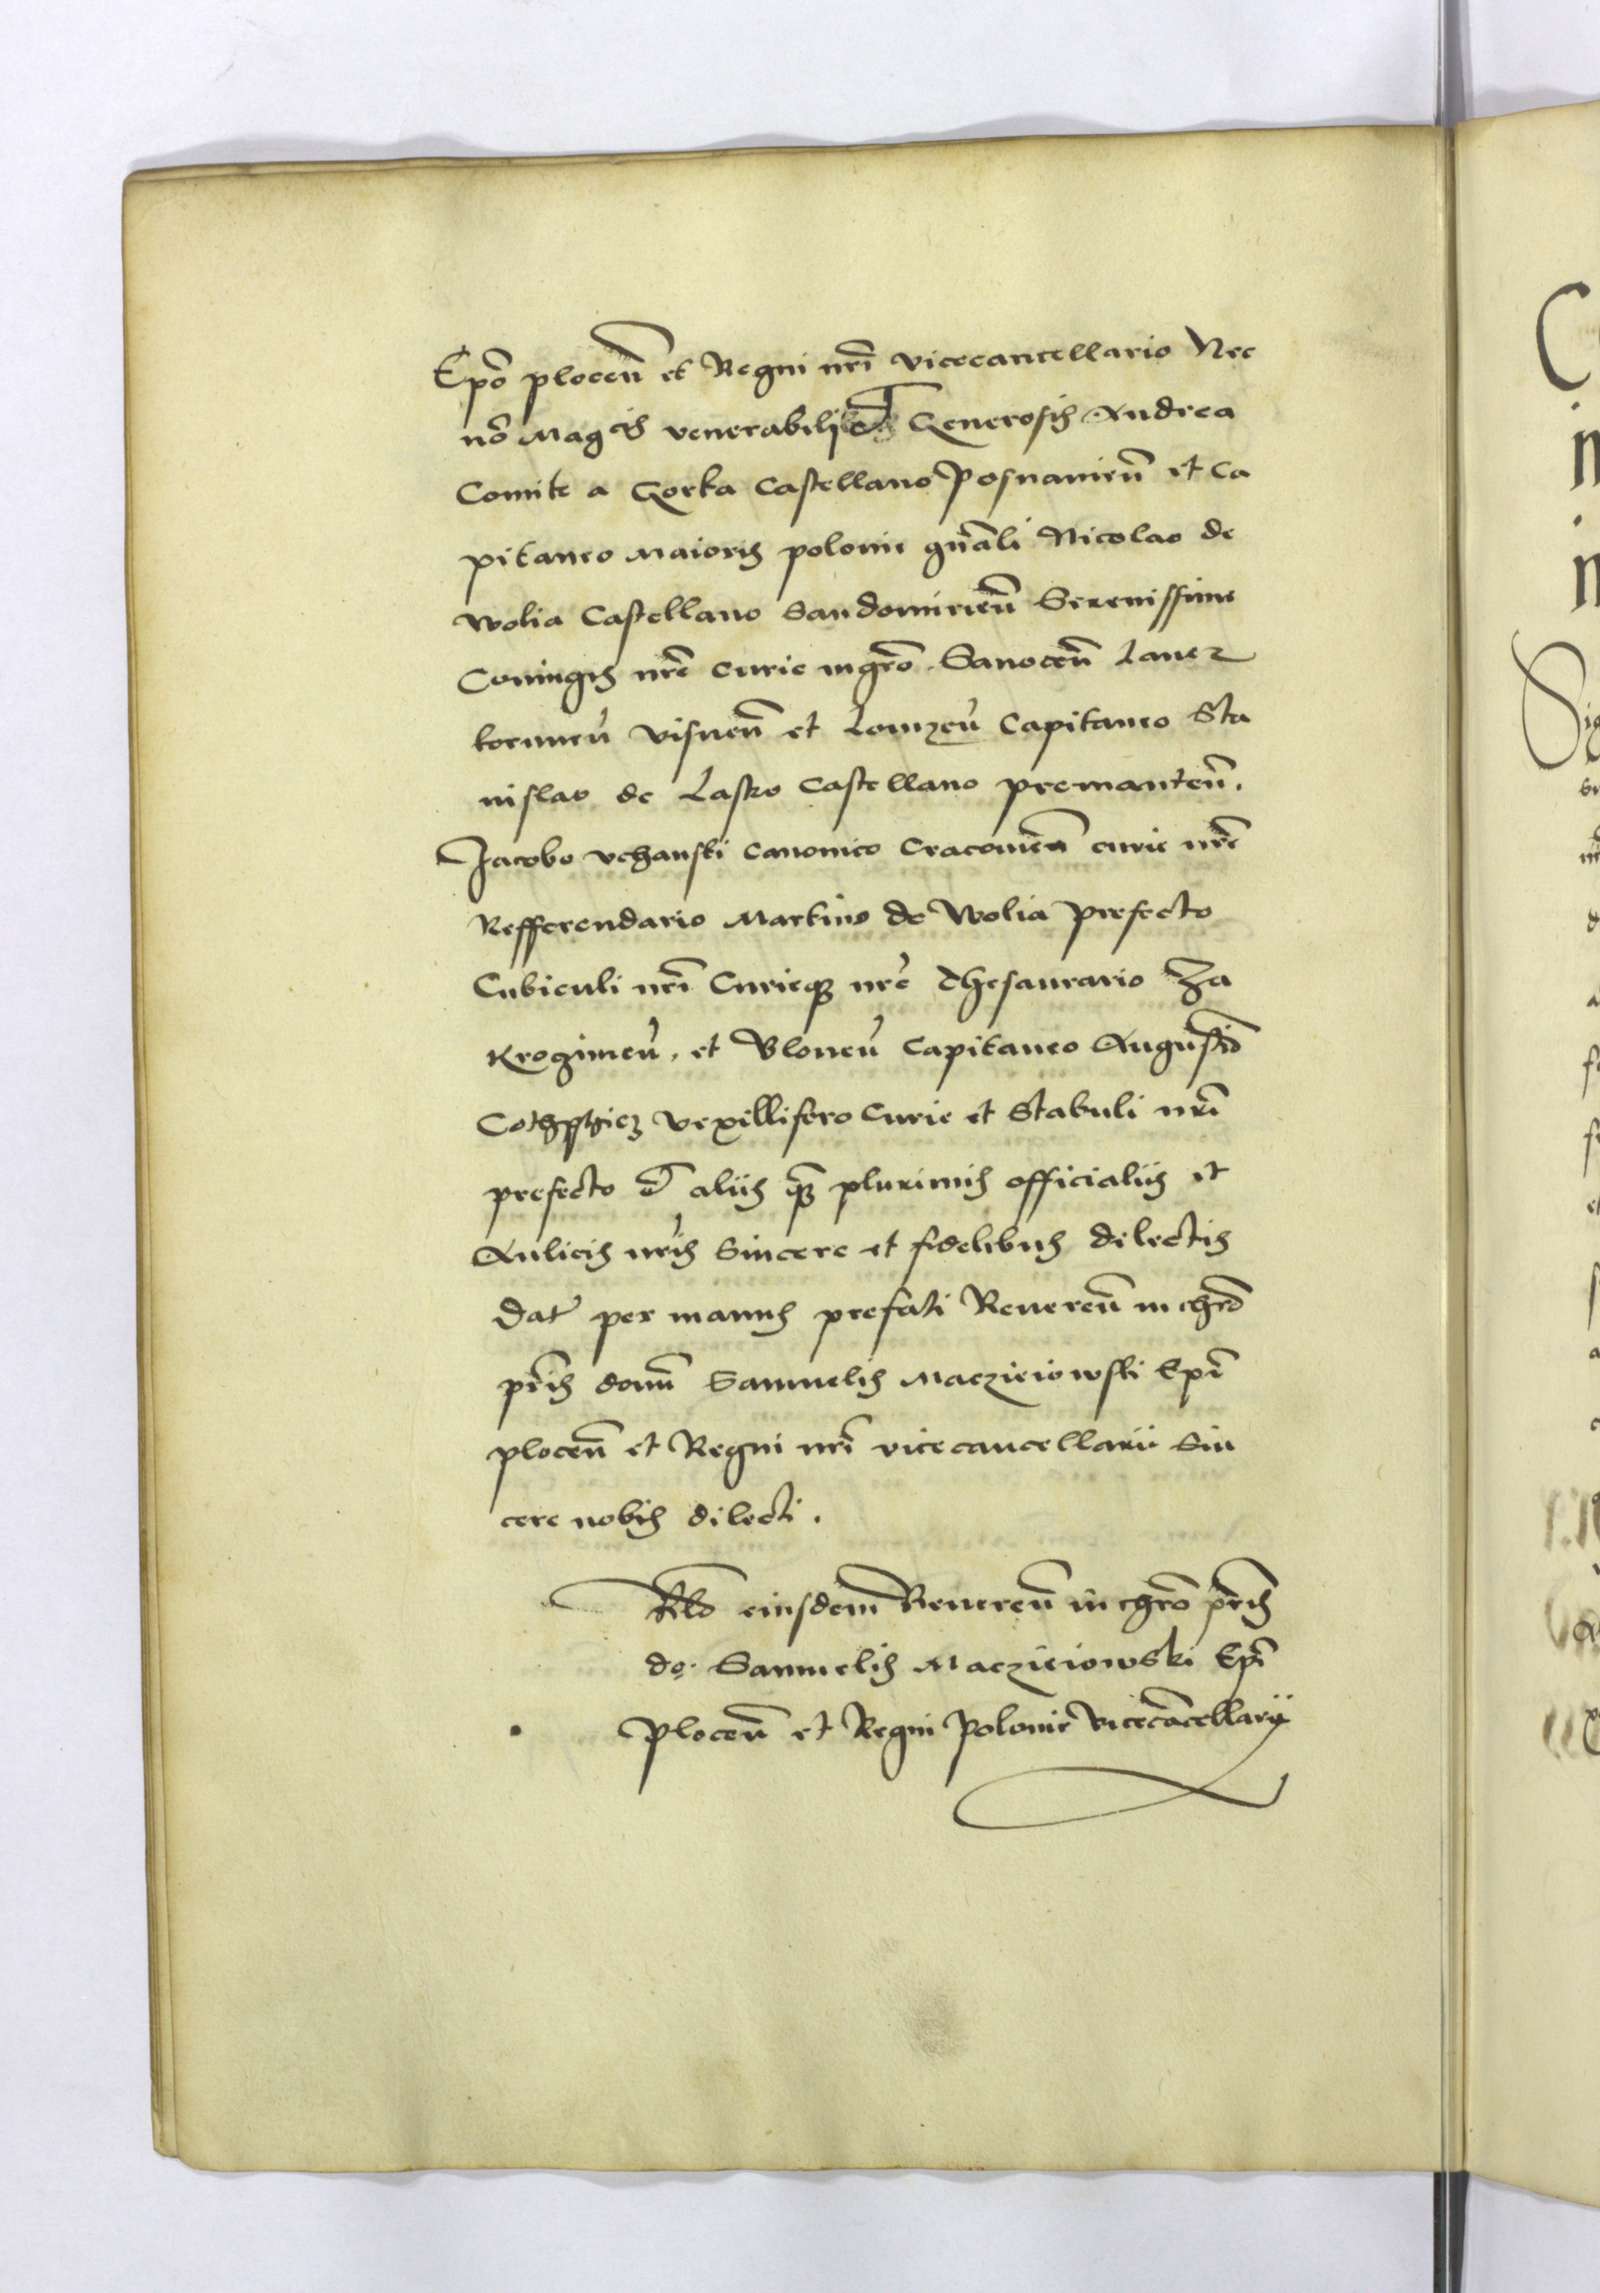 Epo plocen̄ et Regni nr̄i vicecancellario Nec
nō Magcis venerabili et Generosis Andrea
Comite a Gorka Castellano Posnanien̄ et Ca
pitaneo Maioris polonie gn̄ali Nicolao de
wolia Castellano Sandomirien̄ Serenissime
Coniugis nr̄e curie mgr̄o Sanocen̄
visnen̄ et Lomzen̄ Capitaneo Sta
nislao de Lasko Castellano premanten̄.
Jacobo vchanski canonico Cracovien̄ curie nr̄e
Refferendario Martino de Wolia prefecto
Cubiculi nr̄i Curieqȝ nr̄e Thesaurario Za
krogimen̄. et Blonen̄ Capitaneo Augustīo
vexillifero Curie et Stabuli nr̄i
prefecto et aliis qȝ plurimis officialiis et
Aulicis nr̄is Sincere et fidelibus dilectis
Dat̄ per manus prefati Reueren̄ in chro
pr̄is domī Samuelis Maczieiowski Epī
plocen̄ et Regni nr̄i vicecancellarii Sin
cere nobis dilecti.
Rlo eiusdem Reueren̄ in chro pr̄is
do. Samuelis Maczieiowski Epī
Plocen̄ et Regni Polonie Vicecācellarÿ